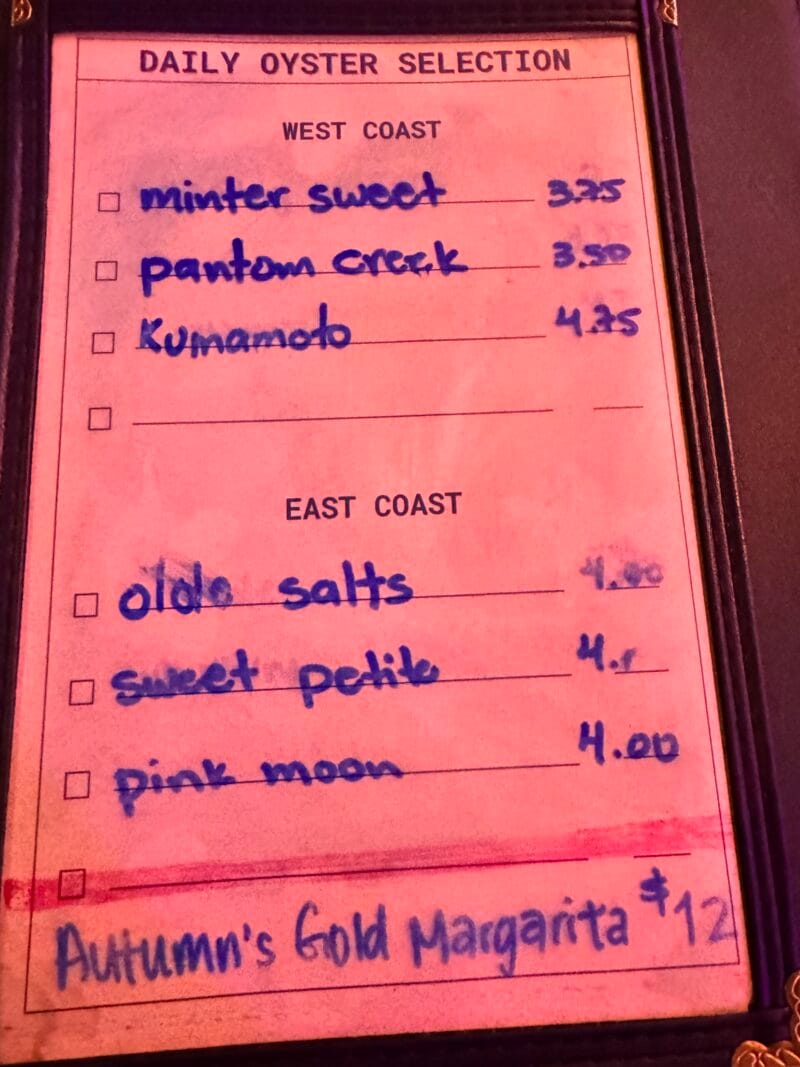 DAILY OYSTER SELECTION
WEST COAST
minter sweet 3.75
pantom creek 3.50
Kumamoto 4.75
EAST COAST
olde salts 4.00
sweet petite
pink moon 4.00
Autumn's Gold Margarita $12